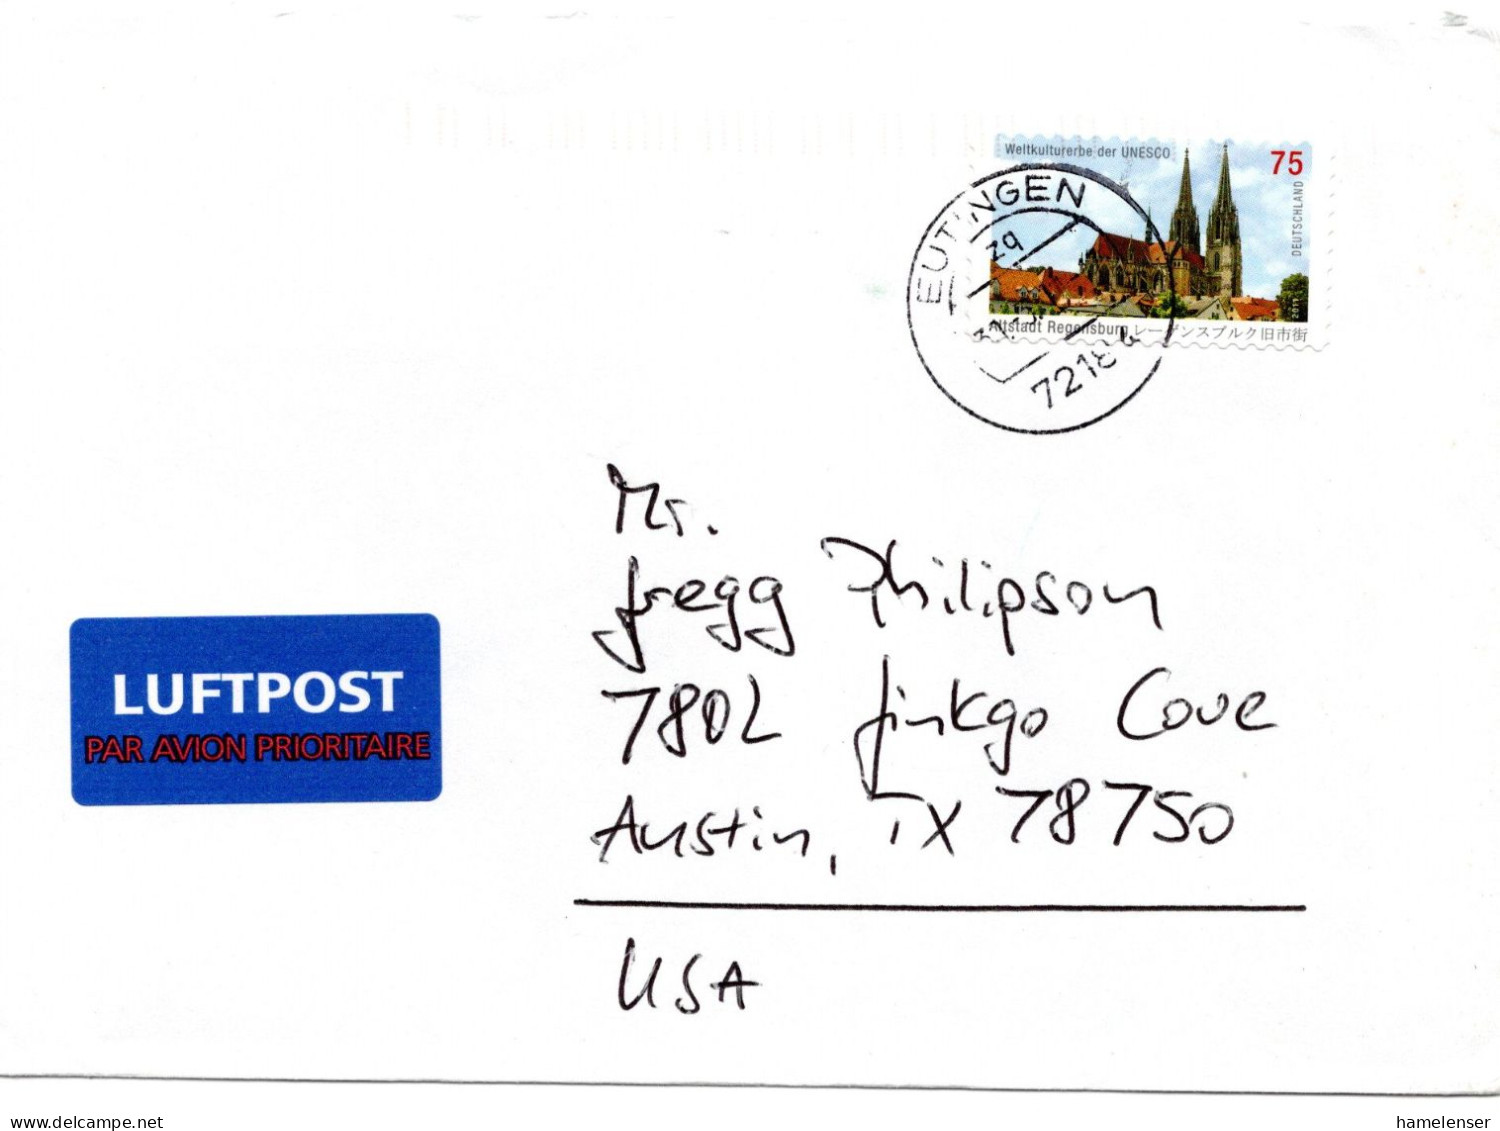 Weltkulturerbe der UNESCO
75
DEUTSCHLAND
2011
Altstadt Regensburg レーゲンスブルク旧市街
EUTINGEN
zg
72184
Mr.
Gregg Philipson
7802 Ginkgo Cove
Austin, TX 78750
USA
LUFTPOST
PAR AVION PRIORITAIRE
www.delcampe.net
hamelenser